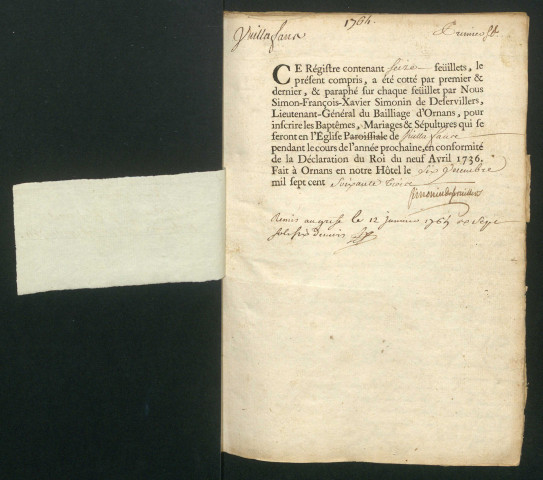 1764.
Vuillafans
CE Régistre contenant seize feüillets, le
présent compris, a été cotté par premier &
dernier, & paraphé sur chaque feüillet par Nous
Simon-François-Xavier Simonin de Deservillers,
Lieutenant-Général du Bailliage d'Ornans, pour
inscrire les Baptêmes, Mariages & Sépultures qui se
feront en l'Église Paroissiale de Vuillafans
pendant le cours de l'année prochaine, en conformité
de la Déclaration du Roi du neuf Avril 1736.
Fait à Ornans en notre Hôtel le six Decembre
mil sept cent Soixante trois
Simonin de Deservillers
Remis au greffe le 12 janvier 1765